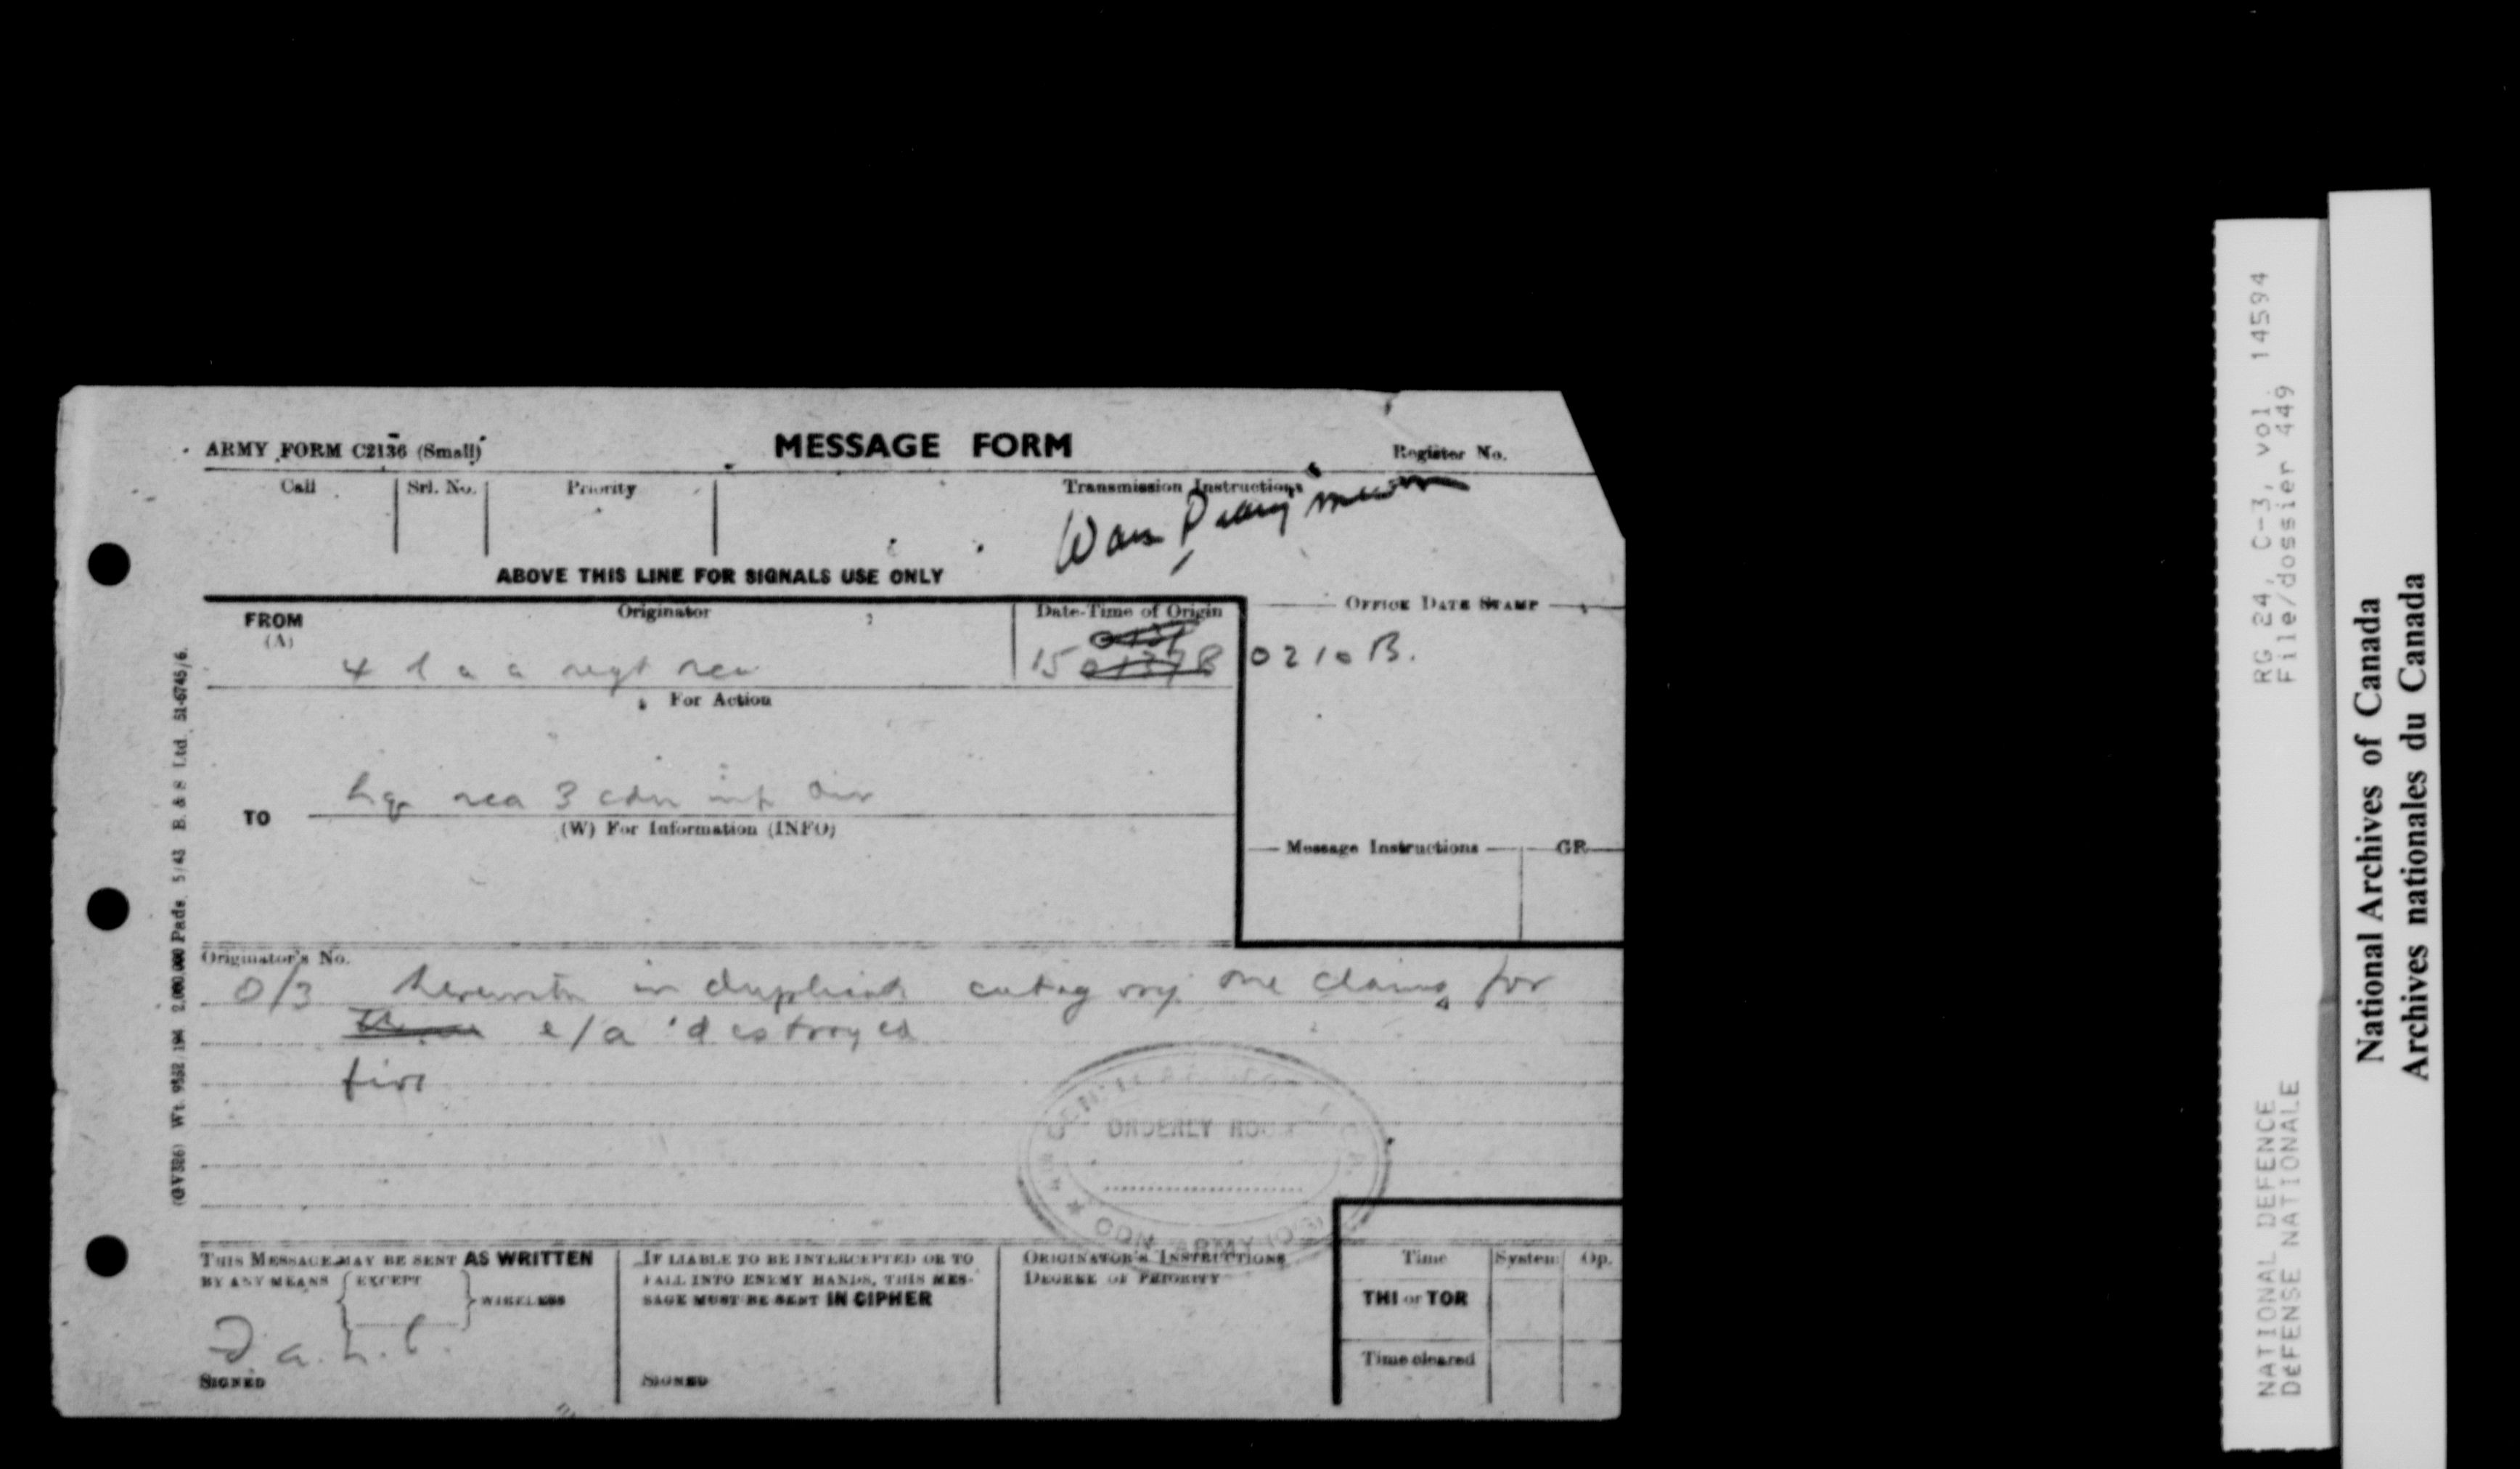 ARMY FORM C2136 (Small)
MESSAGE FORM
Register No.
Call
Srl. No.
Priority
Transmission Instructions
War Diary
ABOVE THIS LINE FOR SIGNALS USE ONLY
FROM
(A)
Originator
Date-Time of Origin
OFFICE DATE STAMP
4 l a a regt rca
15
0210 B.
For Action
hq rca 3 cdn inf div
TO
(W) For Information (INFO)
Message Instructions
GR
Originator's No.
0/3 herewith in duplicate category one claims for
e/a destroyed
five
ORDERLY ROOM
CDN. ARMY (O.S)
THIS MESSAGE MAY BE SENT AS WRITTEN
BY ANY MEANS EXCEPT
WIRELESS
SIGNED
IF LIABLE TO BE INTERCEPTED OR TO
FALL INTO ENEMY HANDS, THIS MES-
SAGE MUST BE SENT IN CIPHER
SIGNED
ORIGINATOR'S INSTRUCTIONS
DEGREE OF PRIORITY
Time
System
Op.
THI or TOR
Time cleared
(GV386) Wt. 9552/194 2,000,000 Pads. 5/43 B. & S Ltd. 51-6745/6.
RG 24, C-3, vol. 14594
File/dossier 449
NATIONAL DEFENCE
DEFENSE NATIONALE
National Archives of Canada
Archives nationales du Canada